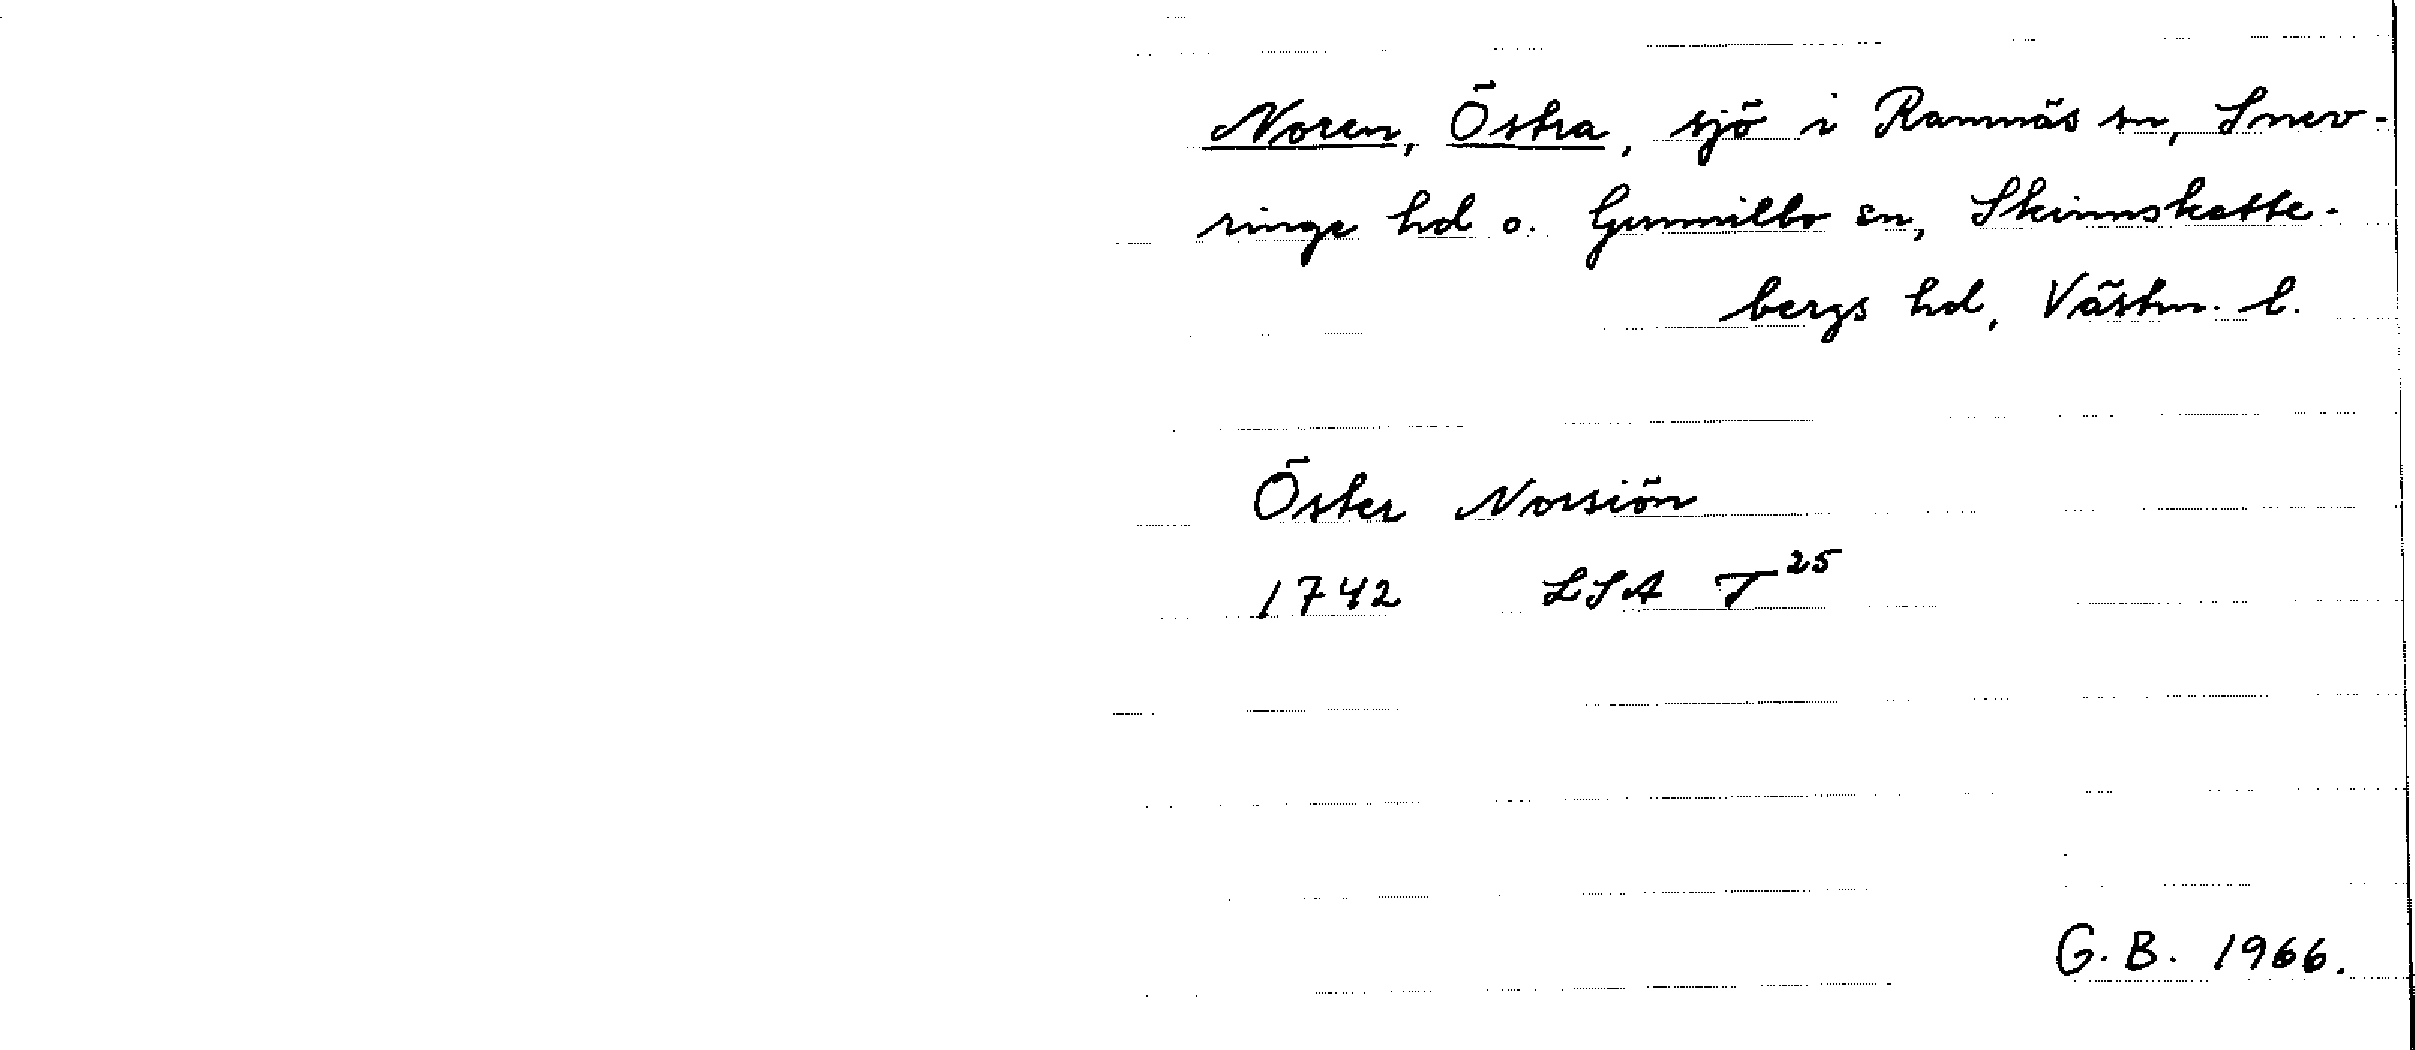 Noren, Östra, sjö i Ramnäs sn, Snev-
ringe hd o. Gunnilbo sn, Skinnskatte-
bergs hd, Västm. l.
Öster Norsiön
1742 LSA T²⁵
G. B. 1966.